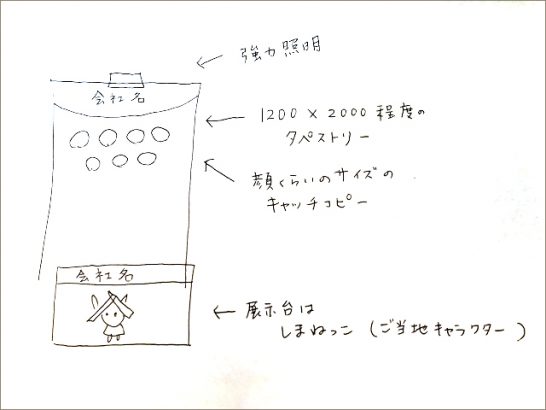 強力照明
会社名
1200×2000程度の
タペストリー
顔くらいのサイズの
キャッチコピー
会社名
展示台は
しまねっこ(ご当地キャラクター)